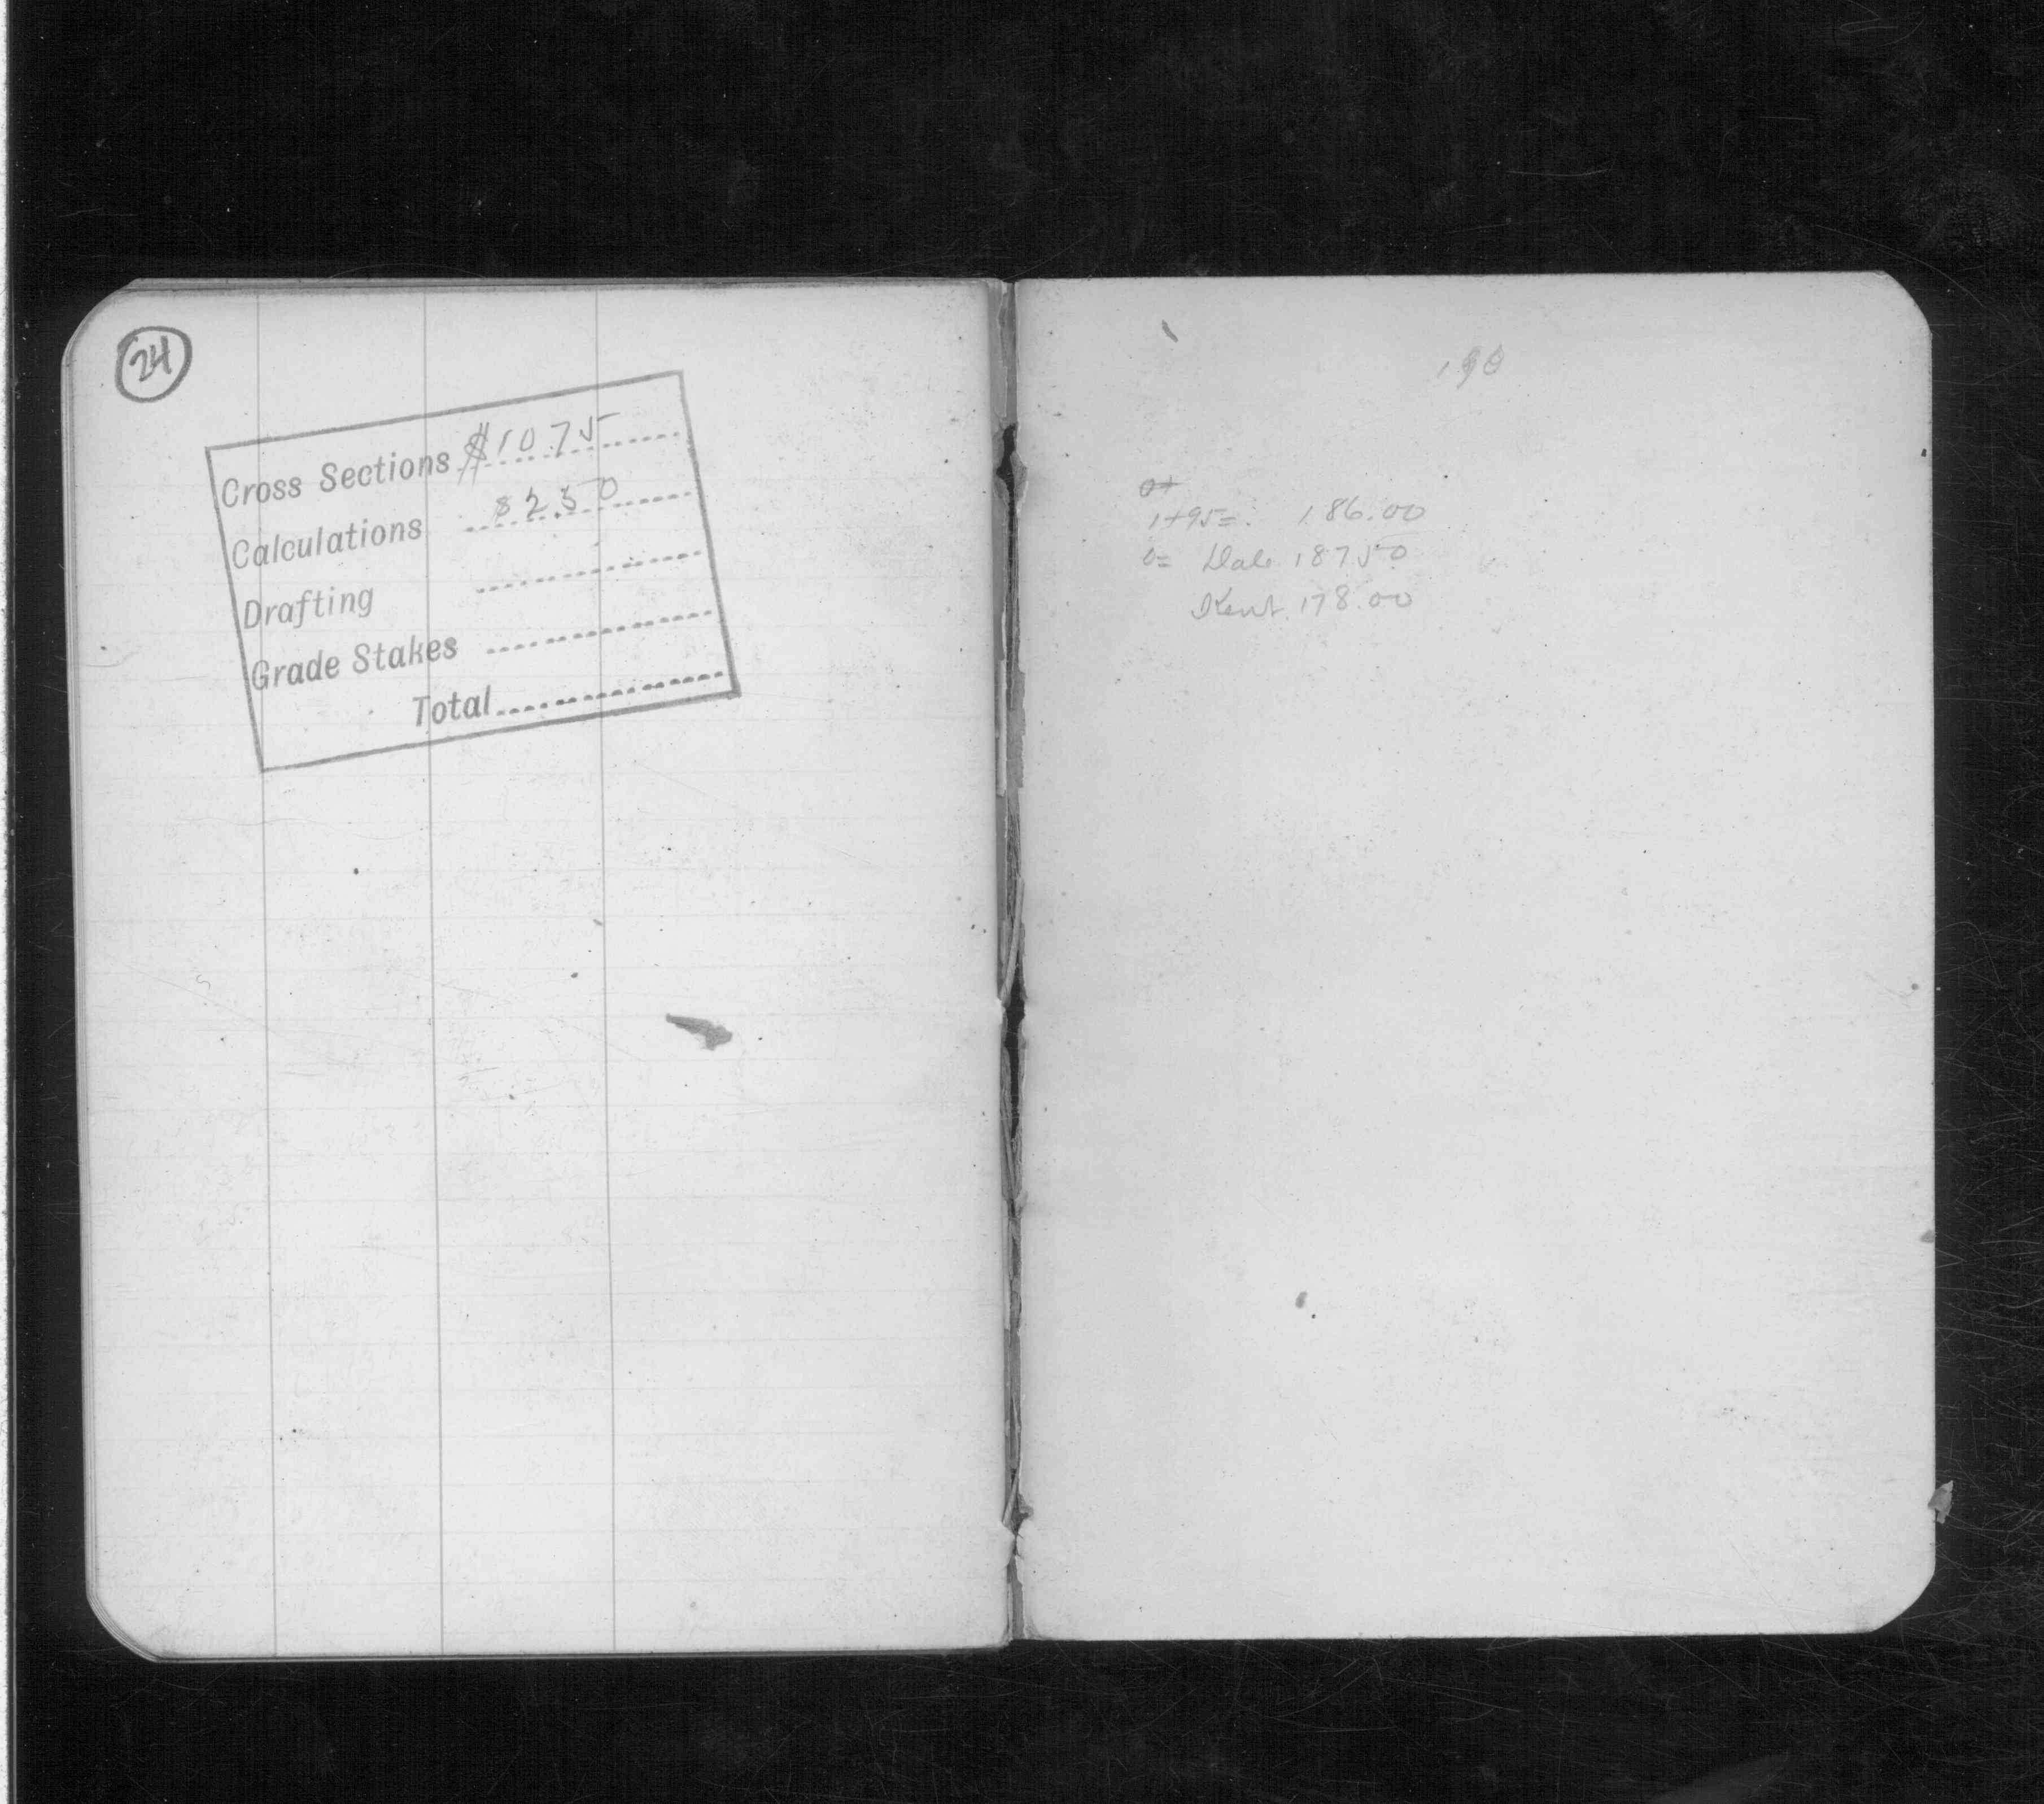 24
Cross Sections $10.75
Calculations $2.50
Drafting
Grade Stakes
Total
190
0+
1+95= 186.00
0= Dale 187.50
Kent 178.00